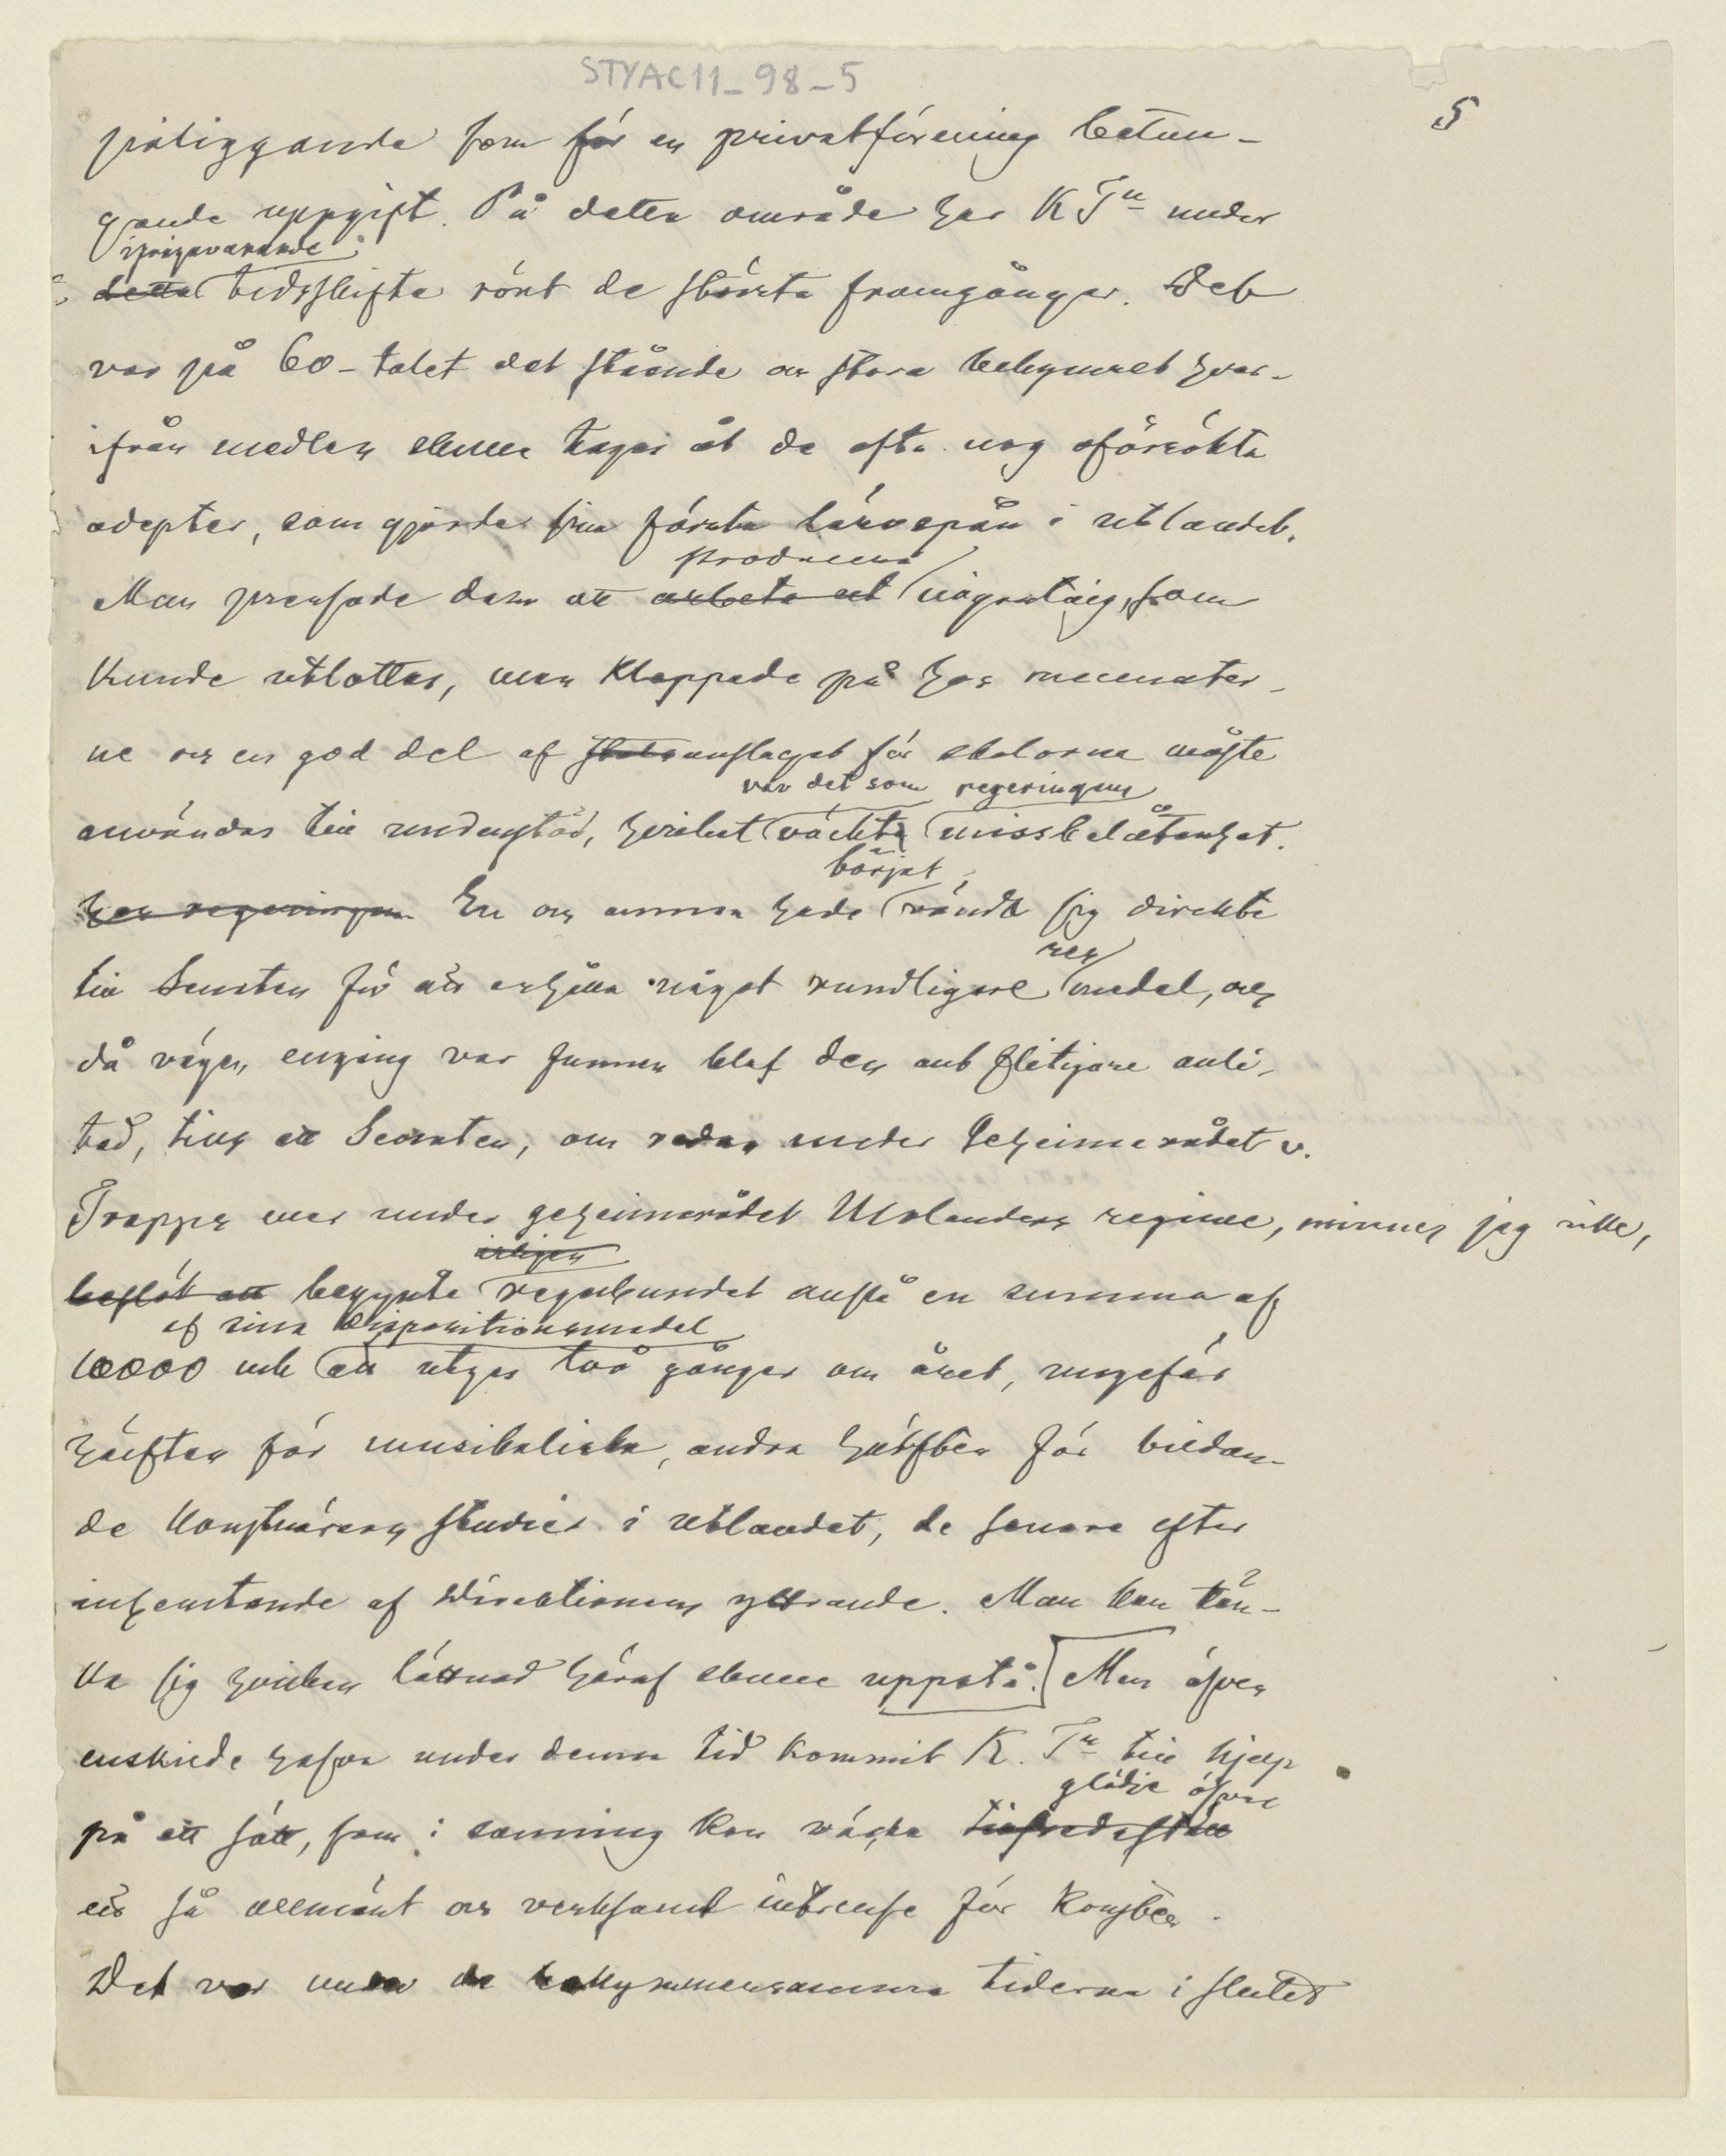 STYAC11_98_5
5
påliggande som för en privatförening betun-
gande uppgift. På detta område har K Fn under
ifrågavarande
detta tidsskifte rönt de största framgångar. Det
var på 60-talet det stående och stora bekymret hvar-
ifrån medlen skulle tagas åt de ofta nog oförsökta
adepter, som gjorde sina första lärospån i utlandet.
producera
Man pressade dem att arbeta ut någonting, som
kunde utlottas, man klappade på hos mecenater-
ne och en god del af statsanslaget för skolorna måste
var det som regeringens
användas till understöd, hvilket väckte missbelåtenhet.
börjat
hos regeringen En och annan hade vända sig direkte
res
till Senaten för att erhålla något rundligare medel, och
då vägen engång var funnen blef den allt flitigare anli-
tad, tills att Senaten, om redan under Geheimerådet v.
Trappes eller under geheimerådet Molanders regime, minnes jag icke,
årligen
beslöt att begynte regelbundet anslå en summa af
af sina dispositionsmedel
10000 mk att utges två gånger om året, ungefär
hälften för musikaliska, andra hälften för bildan-
de konstnärers studier i utlandet, de senare efter
inhemtande af Direktionens yttrande. Man kan tän-
ka sig hvilken lättnad häraf skulle uppstå. Men äfven
enskilde hafva under denna tid kommit K. Fn till hjelp
glädje öfver
på ett sätt, som i sanning kan väcka
ett så allmänt och verksamt intresse för konsten.
Det var under de bekymmersamma tiderna i slutet